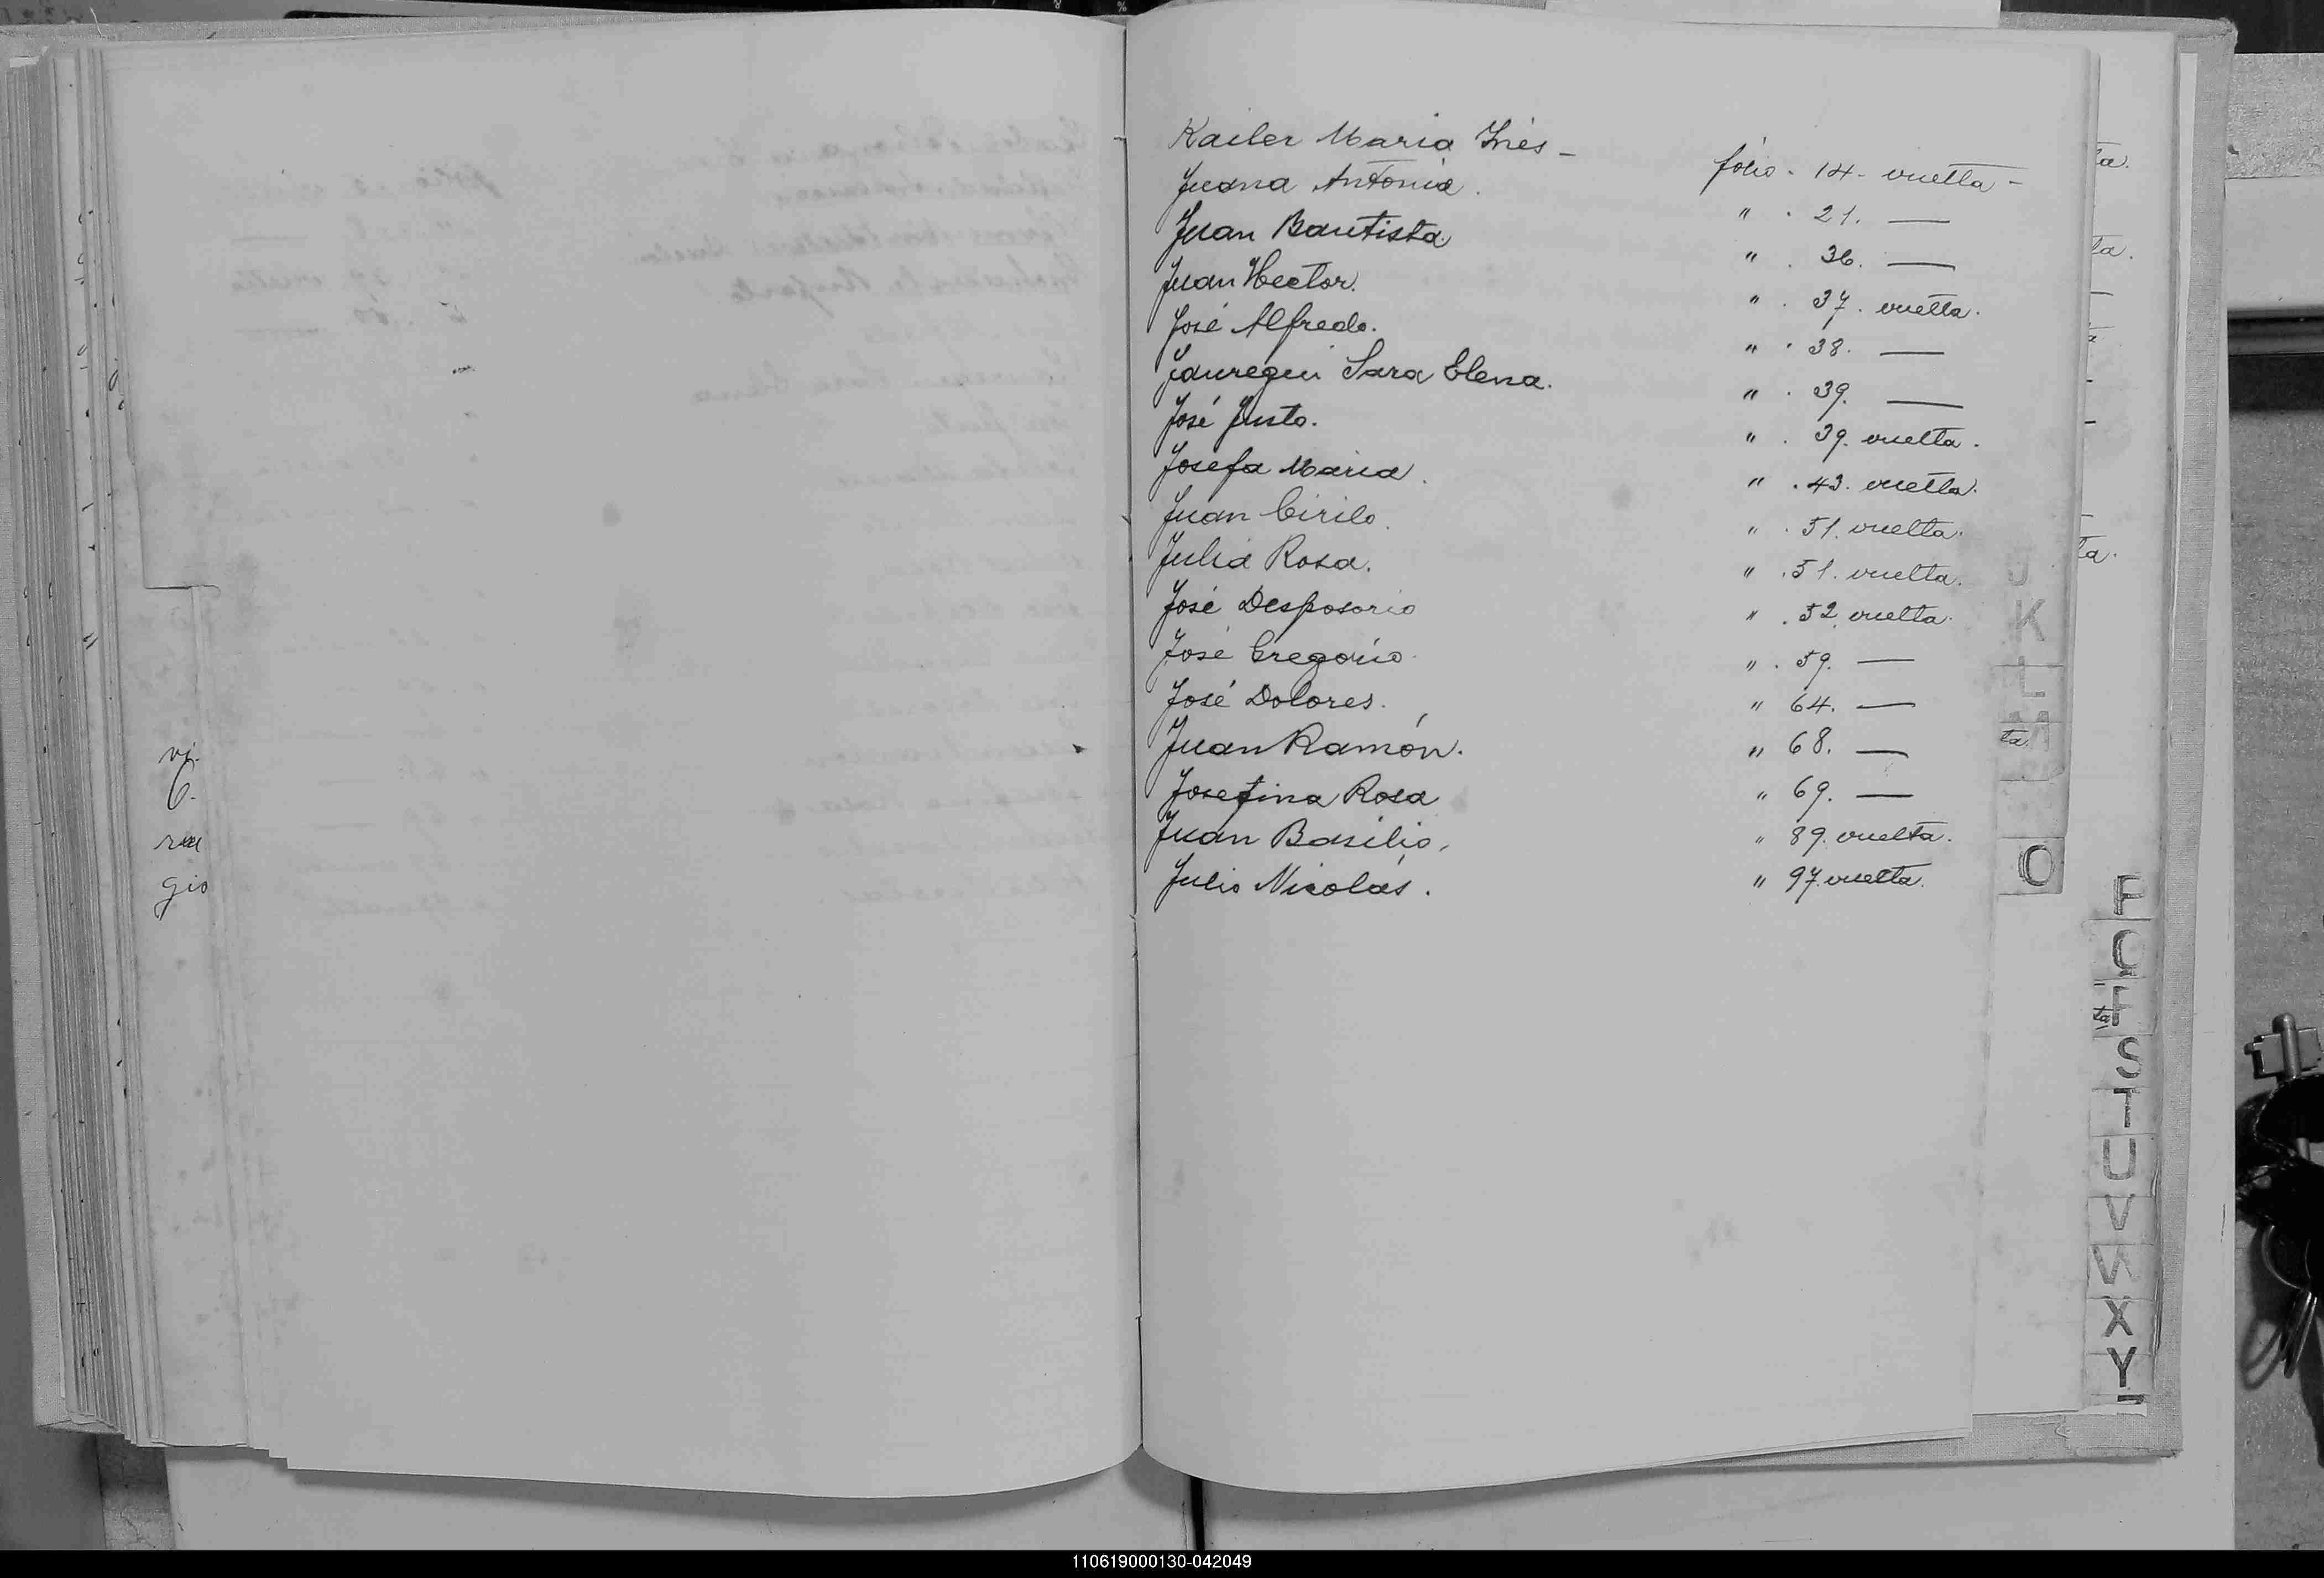 Kailer Maria Inés - fólio - 14 - vuelta -
Juana Antonia. " . 21. —
Juan Bautista " . 36. —
Juan Hector. " . 37. vuelta.
José Alfredo. " . 38. —
Jauregui Sara Elena. " . 39. —
José Justo. " . 39. vuelta.
Josefa Maria. " . 43. vuelta.
Juan Cirilo. " . 51. vuelta.
Julia Rosa. " . 51. vuelta.
José Desposorio " . 52. vuelta.
José Gregorio. " . 59. —
José Dolores. " 64. —
Juan Ramón. " 68. —
Josefina Rosa " 69. —
Juan Basilio. " 89. vuelta.
Julio Nicolás. " 97. vuelta.
gio
J
K
L
M
O
P
Q
S
T
U
V
W
X
Y
110619000130-042049